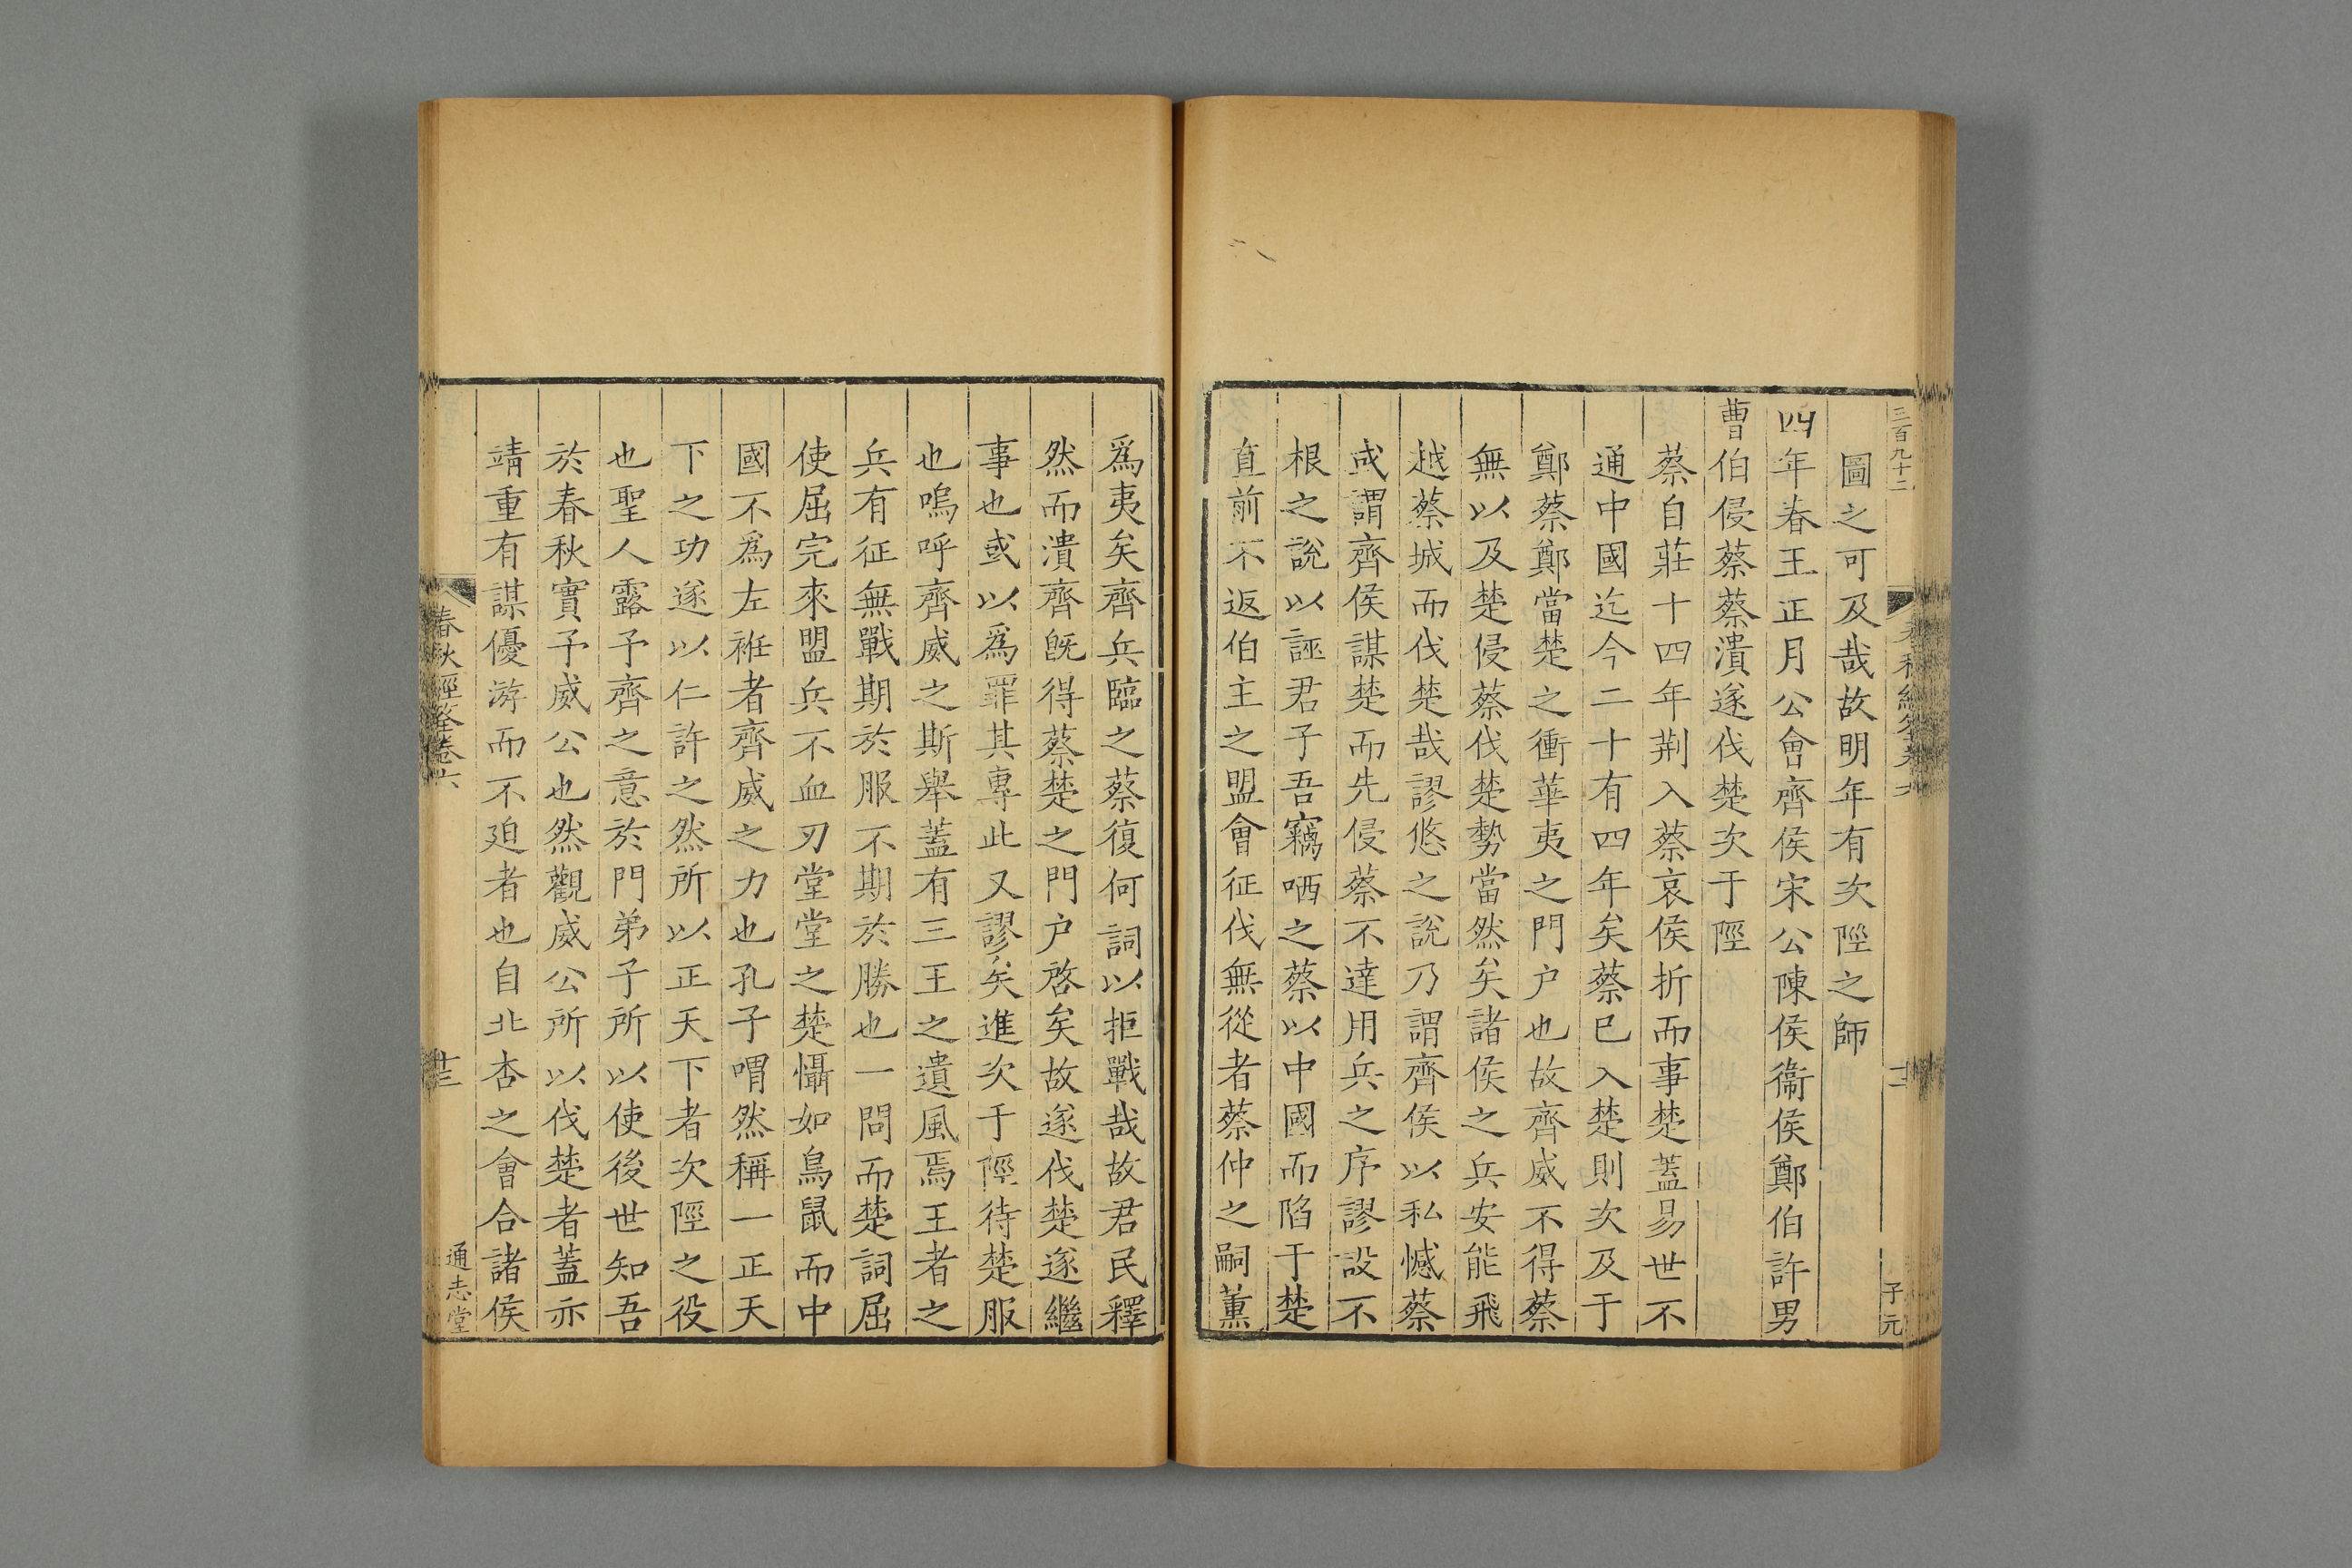 三百九十二
子元
圖之可及哉故明年有次陘之師
四年春王正月公會齊侯宋公陳侯衞侯鄭伯許男
曹伯侵蔡蔡潰遂伐楚次于陘
蔡自莊十四年荆入蔡哀侯折而事楚蓋易世不
通中國迄今二十有四年矣蔡已入楚則次及于
鄭蔡鄭當楚之衝華夷之門户也故齊威不得蔡
無以及楚侵蔡伐楚勢當然矣諸侯之兵安能飛
越蔡城而伐楚哉謬悠之說乃謂齊侯以私憾蔡
或謂齊侯謀楚而先侵蔡不達用兵之序謬設不
根之說以誣君子吾竊哂之蔡以中國而陷于楚
直前不返伯主之盟會征伐無從者蔡仲之嗣薰
爲夷矣齊兵臨之蔡復何詞以拒戰哉故君民釋
然而潰齊旣得蔡楚之門户啓矣故遂伐楚遂繼
事也或以爲罪其專此又謬矣進次于陘待楚服
也嗚呼齊威之斯舉蓋有三王之遺風焉王者之
兵有征無戰期於服不期於勝也一問而楚詞屈
使屈完來盟兵不血刃堂堂之楚懾如鳥鼠而中
國不爲左袵者齊威之力也孔子喟然稱一正天
下之功遂以仁許之然所以正天下者次陘之役
也聖人露予齊之意於門弟子所以使後世知吾
於春秋實予威公也然觀威公所以伐楚者蓋亦
靖重有謀優游而不廹者也自北杏之會合諸侯
春秋經筌卷六
十三
通志堂